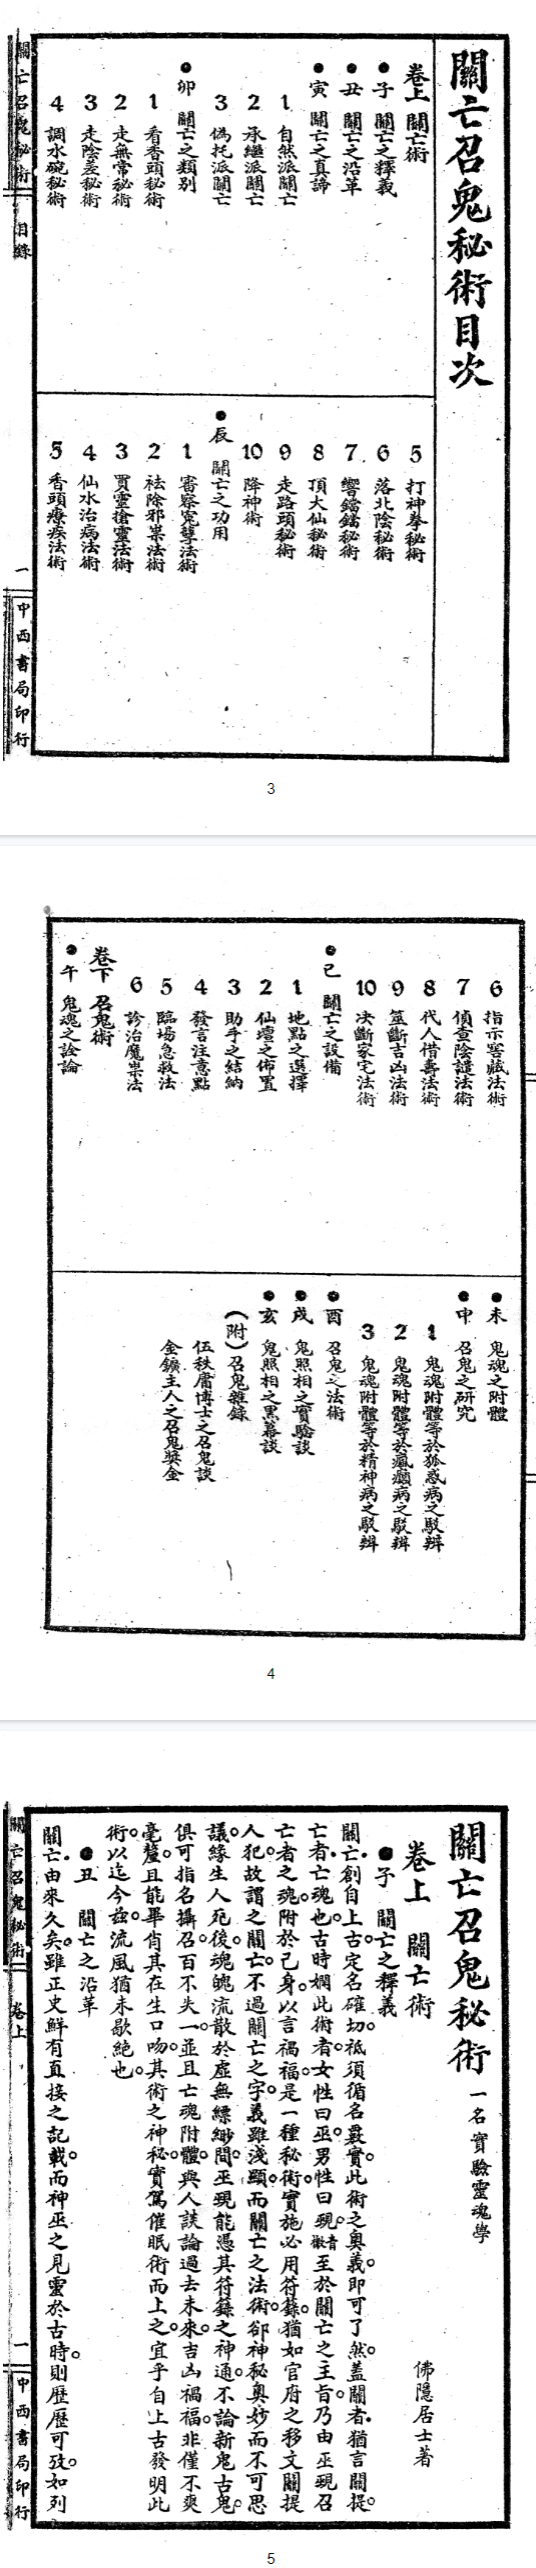 關亡召鬼秘術目次
卷上 關亡術
●子 關亡之釋義
●丑 關亡之沿革
●寅 關亡之真諦
1 自然派關亡
2 承繼派關亡
3 偽托派關亡
●卯 關亡之類別
1 看香頭秘術
2 走無常秘術
3 走陰差秘術
4 調水碗秘術
5 打神拳秘術
6 落北陰秘術
7 響鐺鐺秘術
8 頂大仙秘術
9 走路頭秘術
10 降神術
●辰 關亡之功用
1 審察冤孽法術
2 祛除邪祟法術
3 買靈搶靈法術
4 仙水治病法術
5 香頭療疾法術
關亡召鬼秘術 目錄 一 中西書局印行
3
6 指示窖藏法術
7 偵查陰譴法術
8 代人借壽法術
9 筮斷吉凶法術
10 决斷家宅法術
●巳 關亡之設備
1 地點之選擇
2 仙壇之佈置
3 助手之結納
4 發言注意點
5 臨場急救法
6 診治魔祟法
卷下 召鬼術
●午 鬼魂之詮論
●未 鬼魂之附體
●申 召鬼之研究
1 鬼魂附體等於狐惑病之駁辨
2 鬼魂附體等於瘋癲病之駁辨
3 鬼魂附體等於精神病之駁辨
●酉 召鬼之法術
●戌 鬼照相之實驗談
●亥 鬼照相之黑幕談
（附）召鬼雜錄
伍秩庸博士之召鬼談
金鑛主人之召鬼獎金
4
關亡召鬼秘術 一名實驗靈魂學
卷上 關亡術 佛隱居士著
●子 關亡之釋義
關亡創自上古。定名確切。祗須循名覈實。此術之奧義。即可了然。蓋關者。猶言關提。
亡者。亡魂也。古時嫻此術者。女性曰巫。男性曰覡。至於關亡之主旨。乃由巫覡召
亡者之魂。附於己身。以言禍福。是一種秘術。實施必用符籙。猶如官府之移文關提
人犯。故謂之關亡。不過關亡之字義雖淺顯。而關亡之法術。卻神秘奧妙而不可思
議。緣生人死後。魂魄流散於虛無縹緲間。巫覡能憑其符籙之神通。不論新鬼古鬼。
俱可指名攝召。百不失一。並且亡魂附體。與人談論過去未來。吉凶禍福。非僅不爽
毫釐。且能畢肖其在生口吻。其術之神秘。實駕催眠術而上之。宜乎自上古發明此
術。以迄今茲。流風猶未歇絕也。
●丑 關亡之沿革
關亡由來久矣。雖正史鮮有直接之記載。而神巫之見靈於古時。則歷歷可攷。如列
關亡召鬼秘術 卷上 一 中西書局印行
5